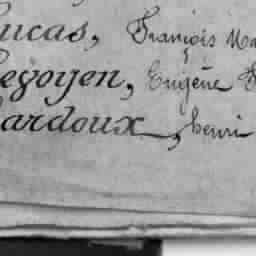 ucas, François Ma
egoyen, Eugène
ardoux, henri